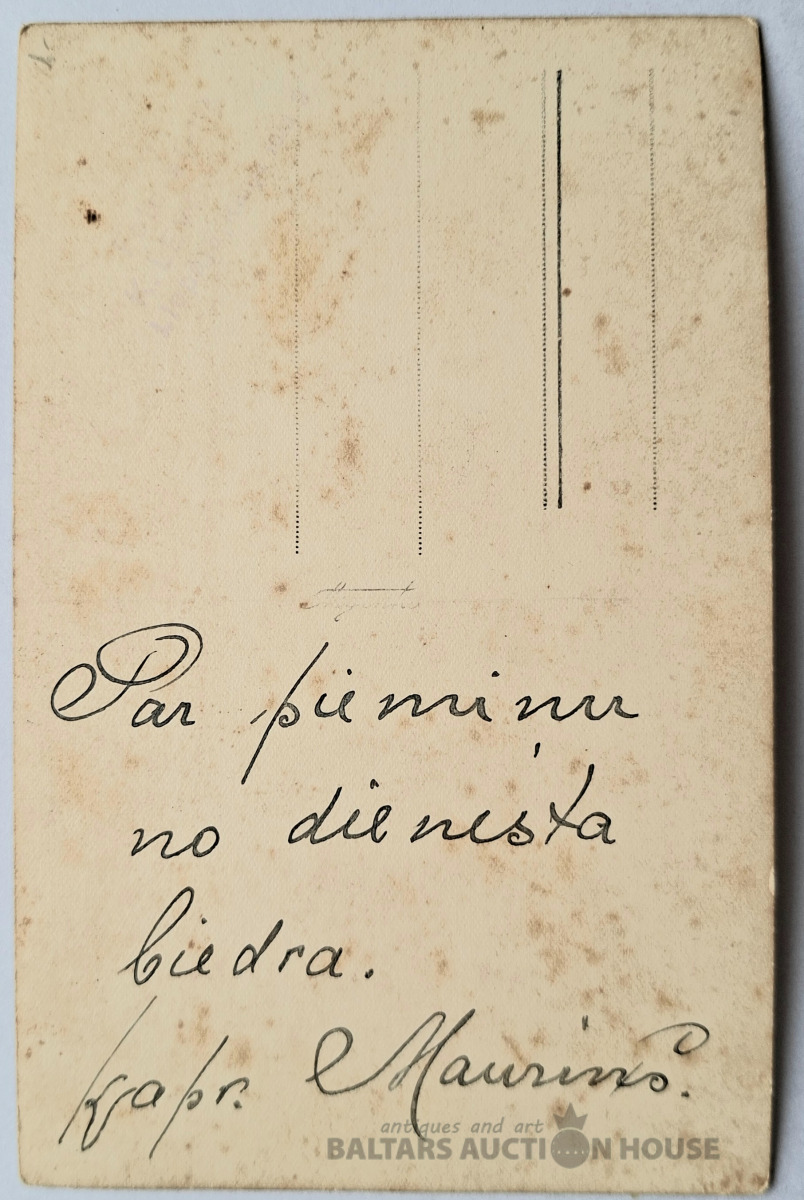 Par pieminu
no dienesta
biedra.
kapr. Mauriņš.
antiques and art
BALTARS AUCTION HOUSE